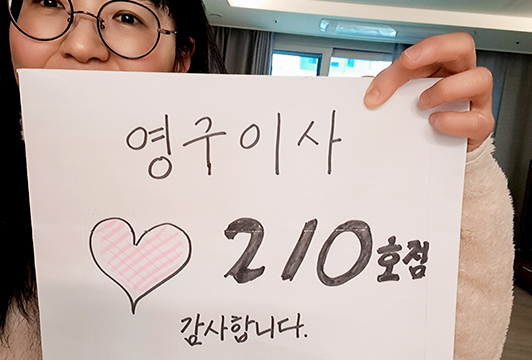 영구이사
210호점
감사합니다.